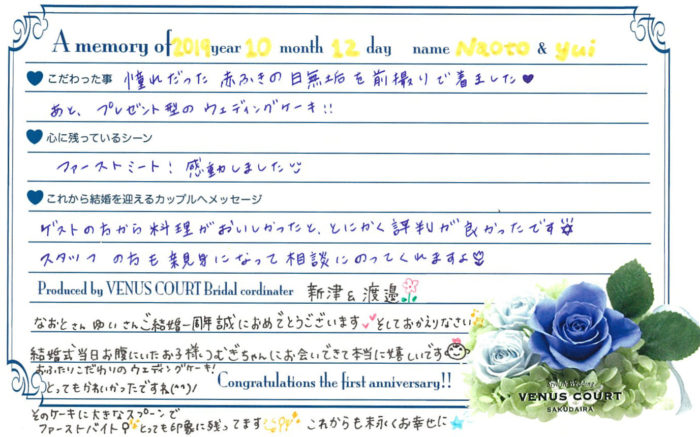 A memory of 2019 year 10 month 12 day name Naoto & yui
こだわった事 憧れだった 赤ふきの白無垢を前撮りで着ました♥
あと、プレゼント型のウェディングケーキ!!
心に残っているシーン
ファーストミート! 感動しました
これから結婚を迎えるカップルへメッセージ
ゲストの方から料理がおいしかったと、とにかく評判が良かったです
スタッフの方も親身になって相談にのってくれますよ
Produced by VENUS COURT Bridal cordinater 新津&渡邉
なおとさん ゆいさんご結婚一周年誠におめでとうございます そしておかえりなさい
結婚式当日お腹にいたお子様つむぎちゃんにお会いできて本当に嬉しいです
おふたりこだわりのウェディングケーキ!
とってもかわいかったですね(^^)/
Congratulations the first anniversary!!
そのケーキに大きなスプーンで
ファーストバイト とっても印象に残ってます これからも末永くお幸せに
VENUS COURT
SAKUDAIRA